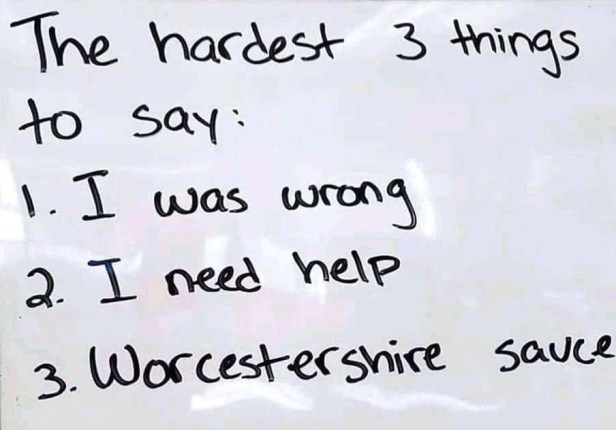 The hardest 3 things
to say:
1. I was wrong
2. I need help
3. Worcestershire sauce